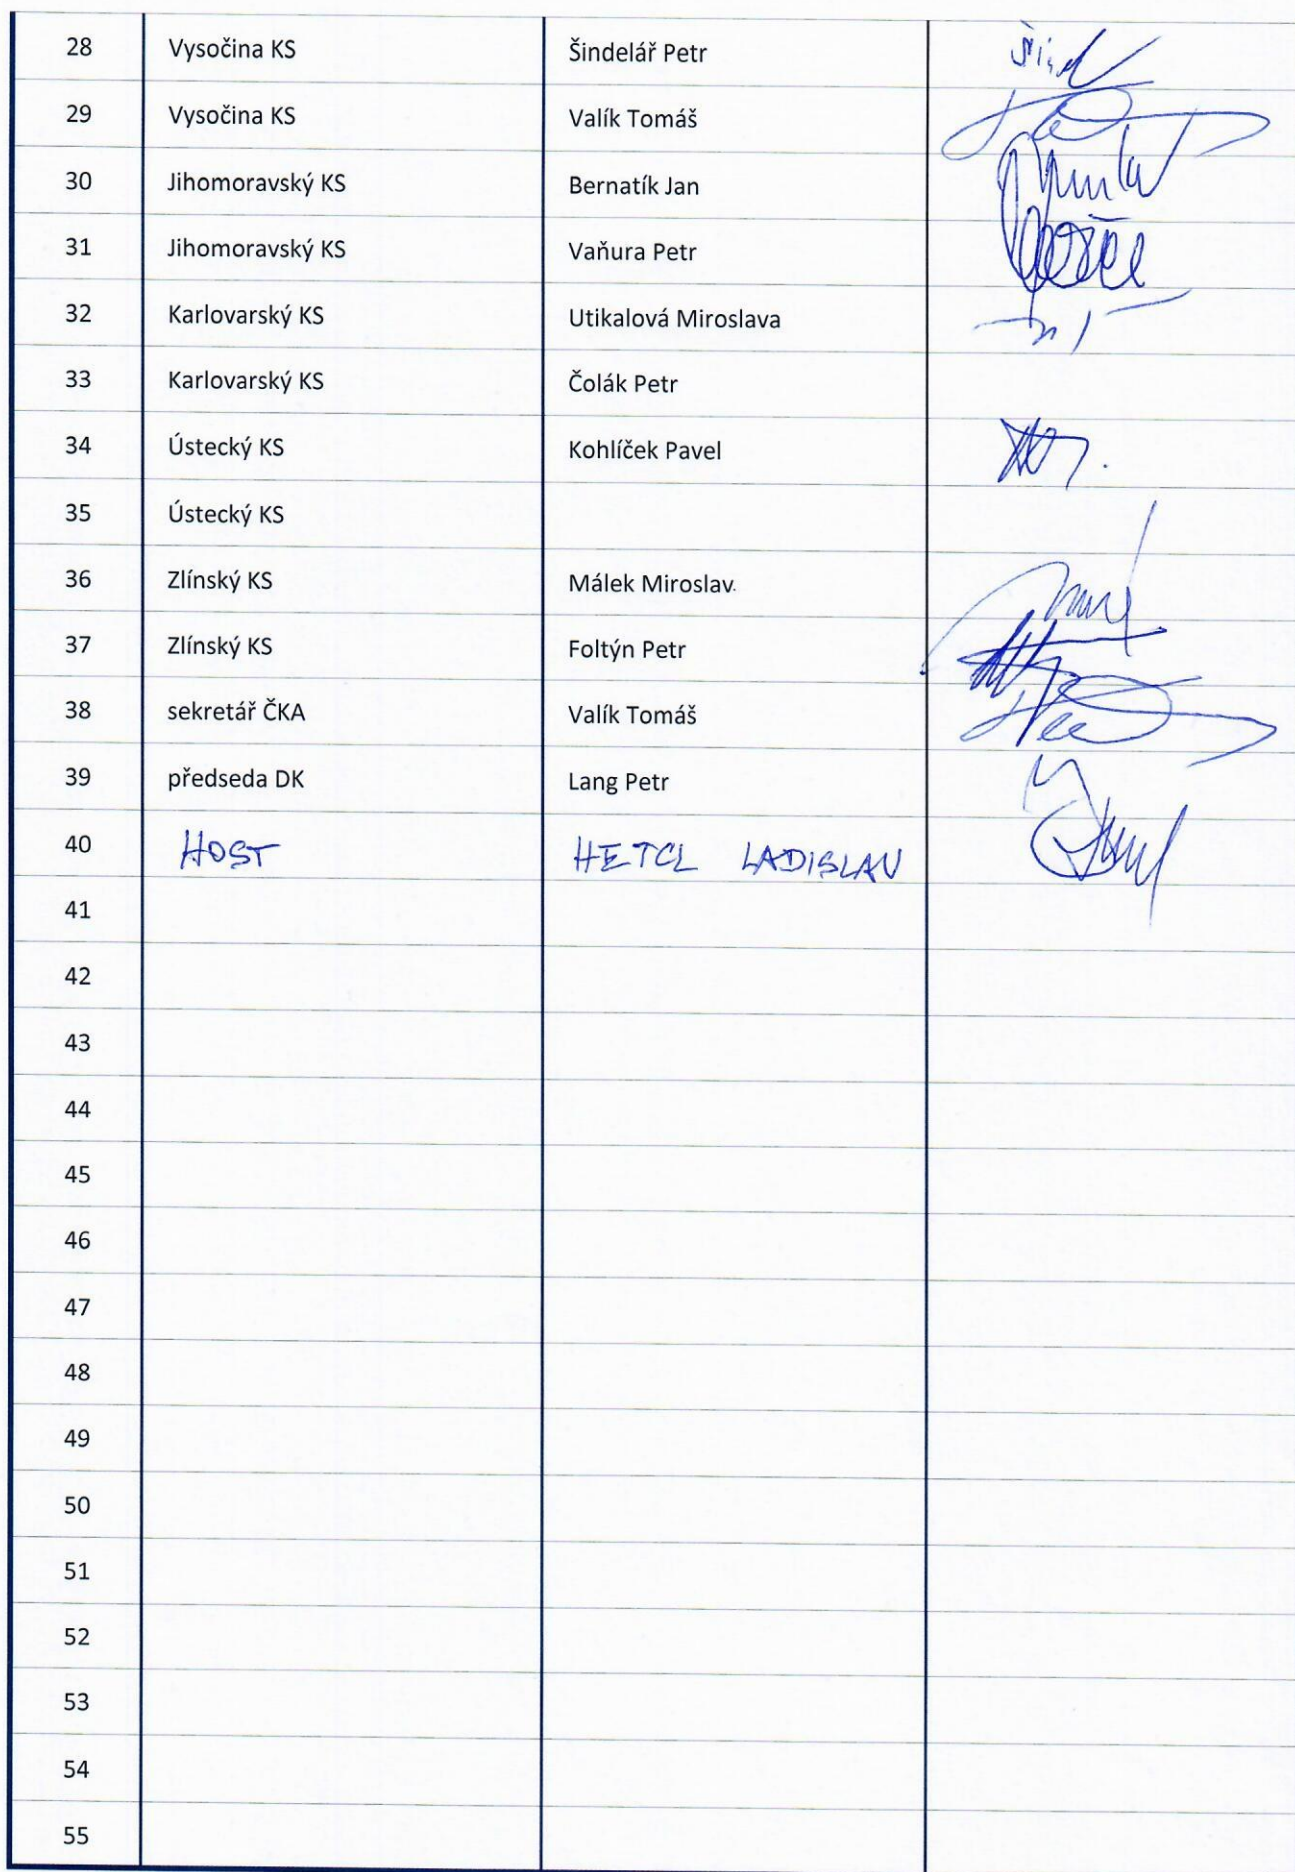 28 Vysočina KS Šindelář Petr
29 Vysočina KS Valík Tomáš
30 Jihomoravský KS Bernatík Jan
31 Jihomoravský KS Vaňura Petr
32 Karlovarský KS Utikalová Miroslava
33 Karlovarský KS Čolák Petr
34 Ústecký KS Kohlíček Pavel
35 Ústecký KS
36 Zlínský KS Málek Miroslav
37 Zlínský KS Foltýn Petr
38 sekretář ČKA Valík Tomáš
39 předseda DK Lang Petr
40 HOST HETCL LADISLAV
41
42
43
44
45
46
47
48
49
50
51
52
53
54
55